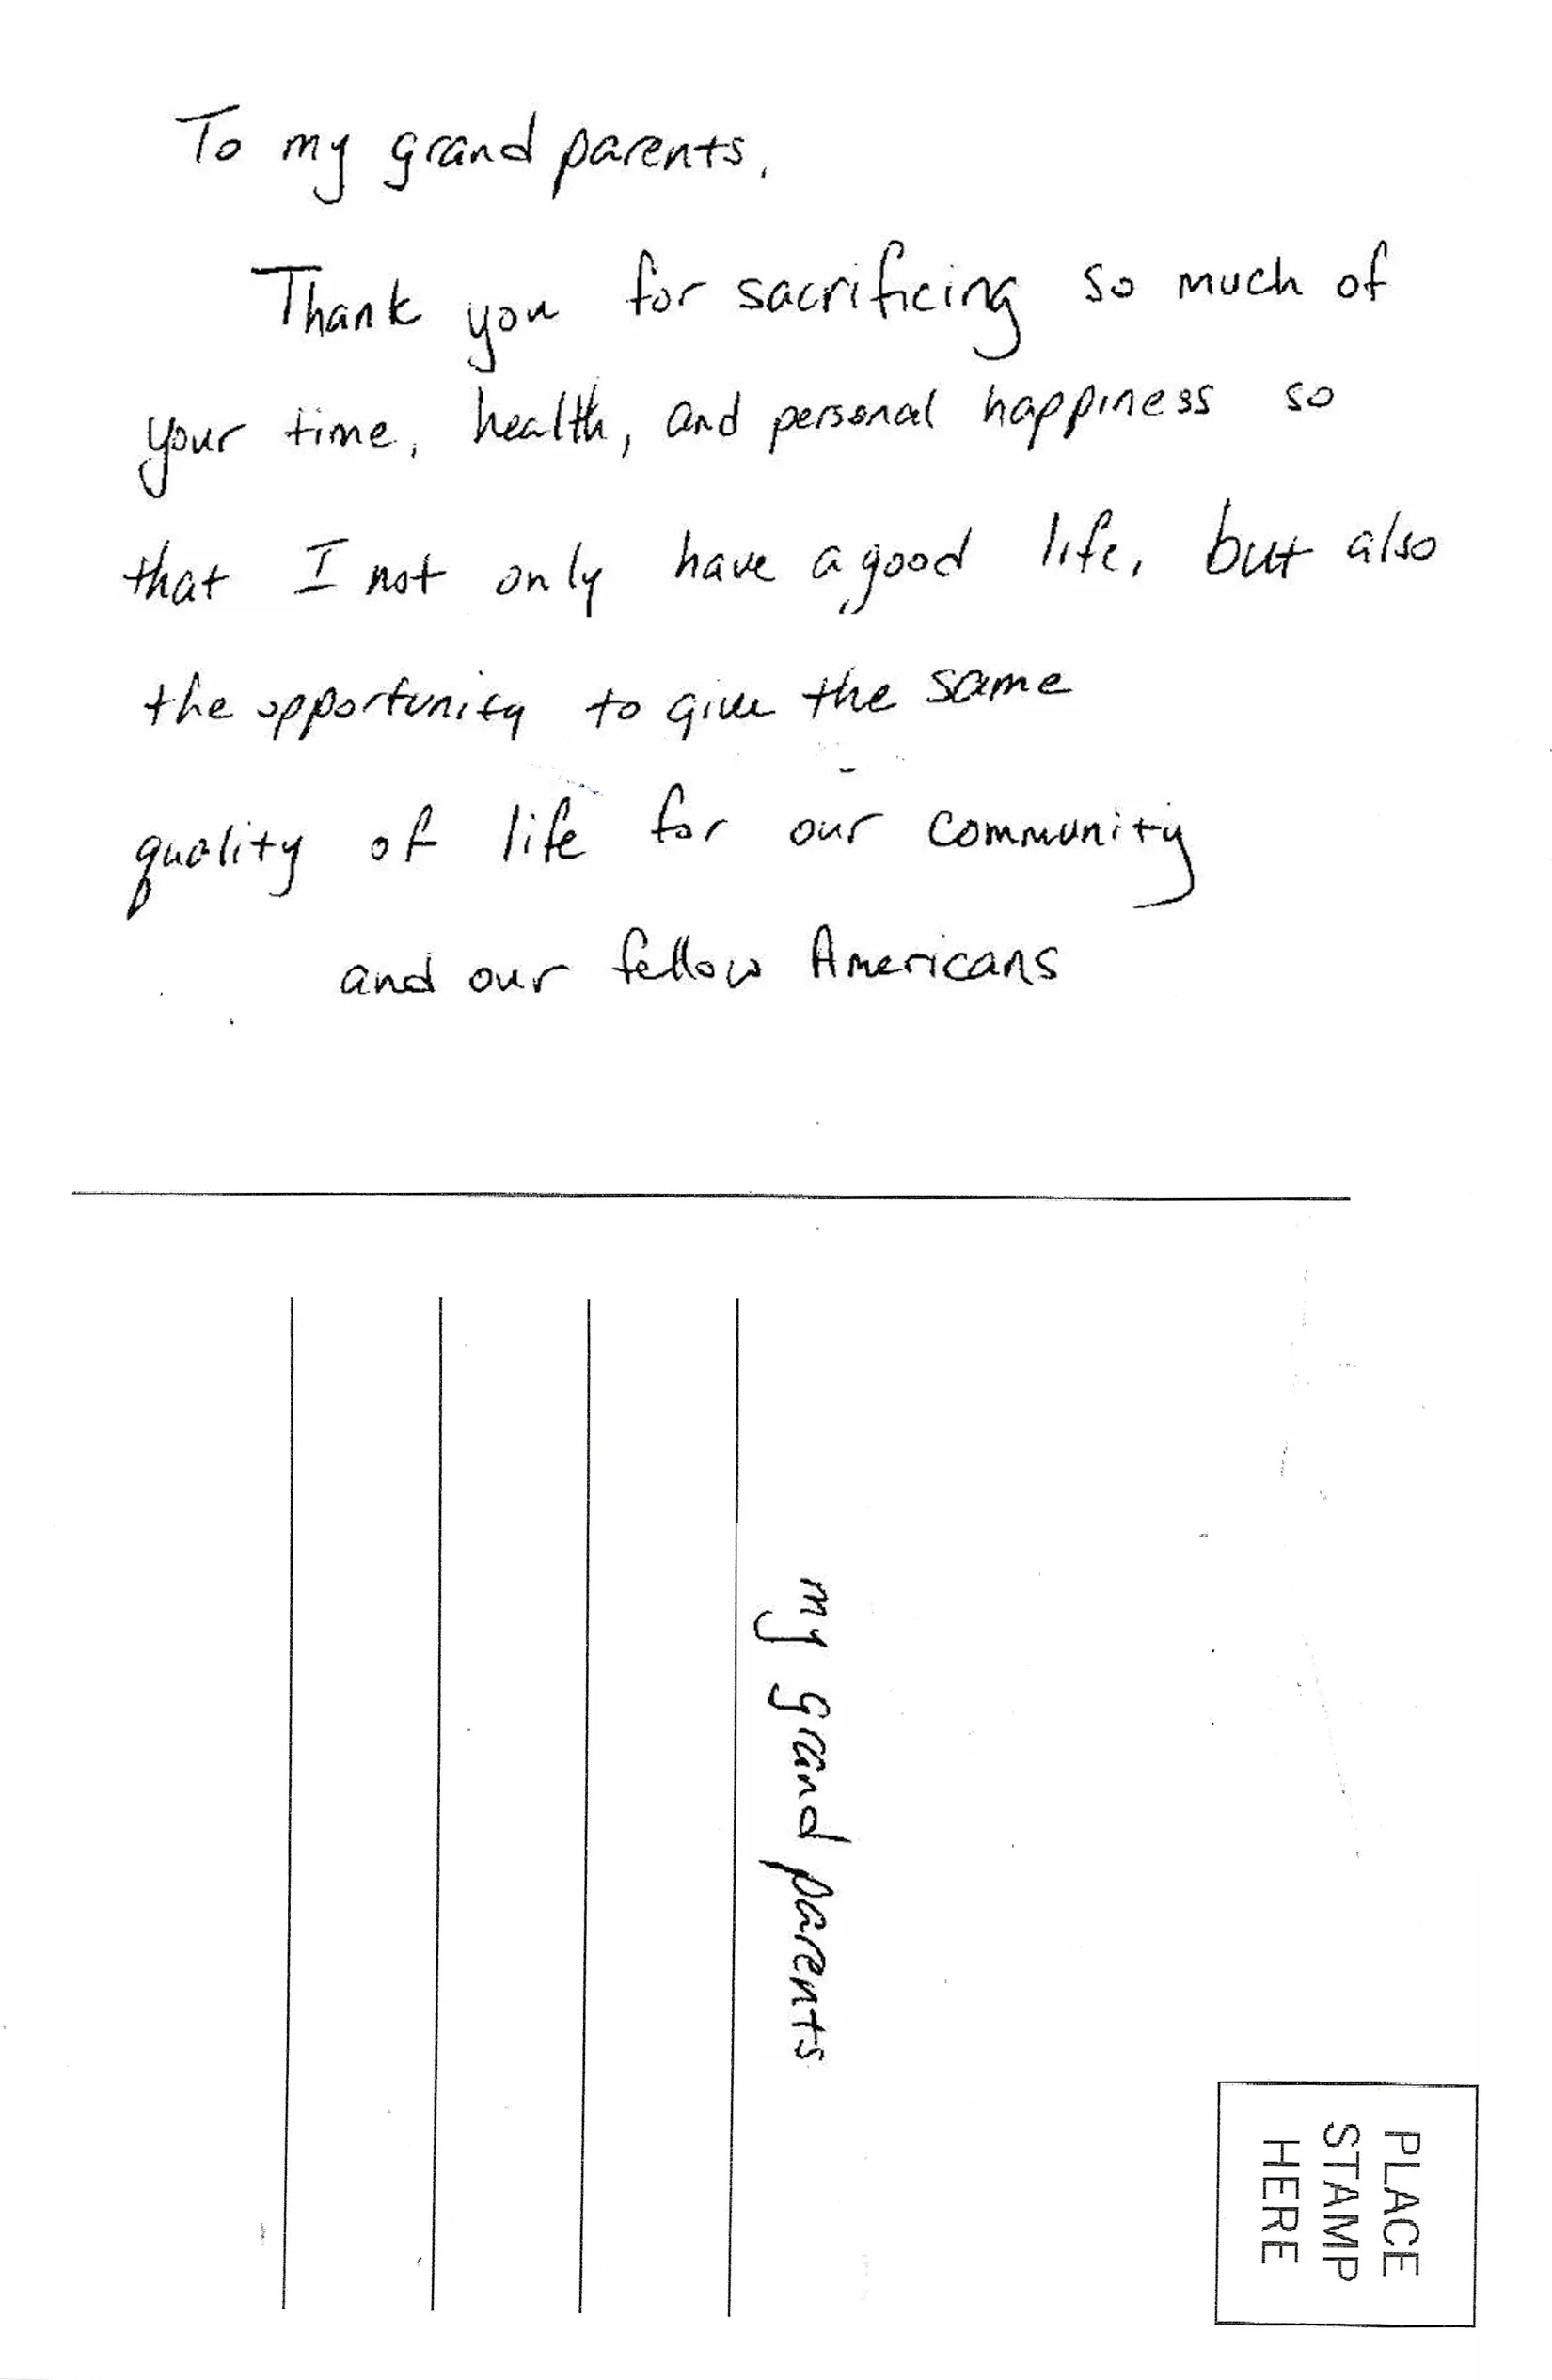 To my grandparents,
Thank you for sacrificing so much of
your time, health, and personal happiness so
that I not only have a good life, but also
the opportunity to give the same
quality of life for our community
and our fellow Americans
my grandparents
PLACE
STAMP
HERE